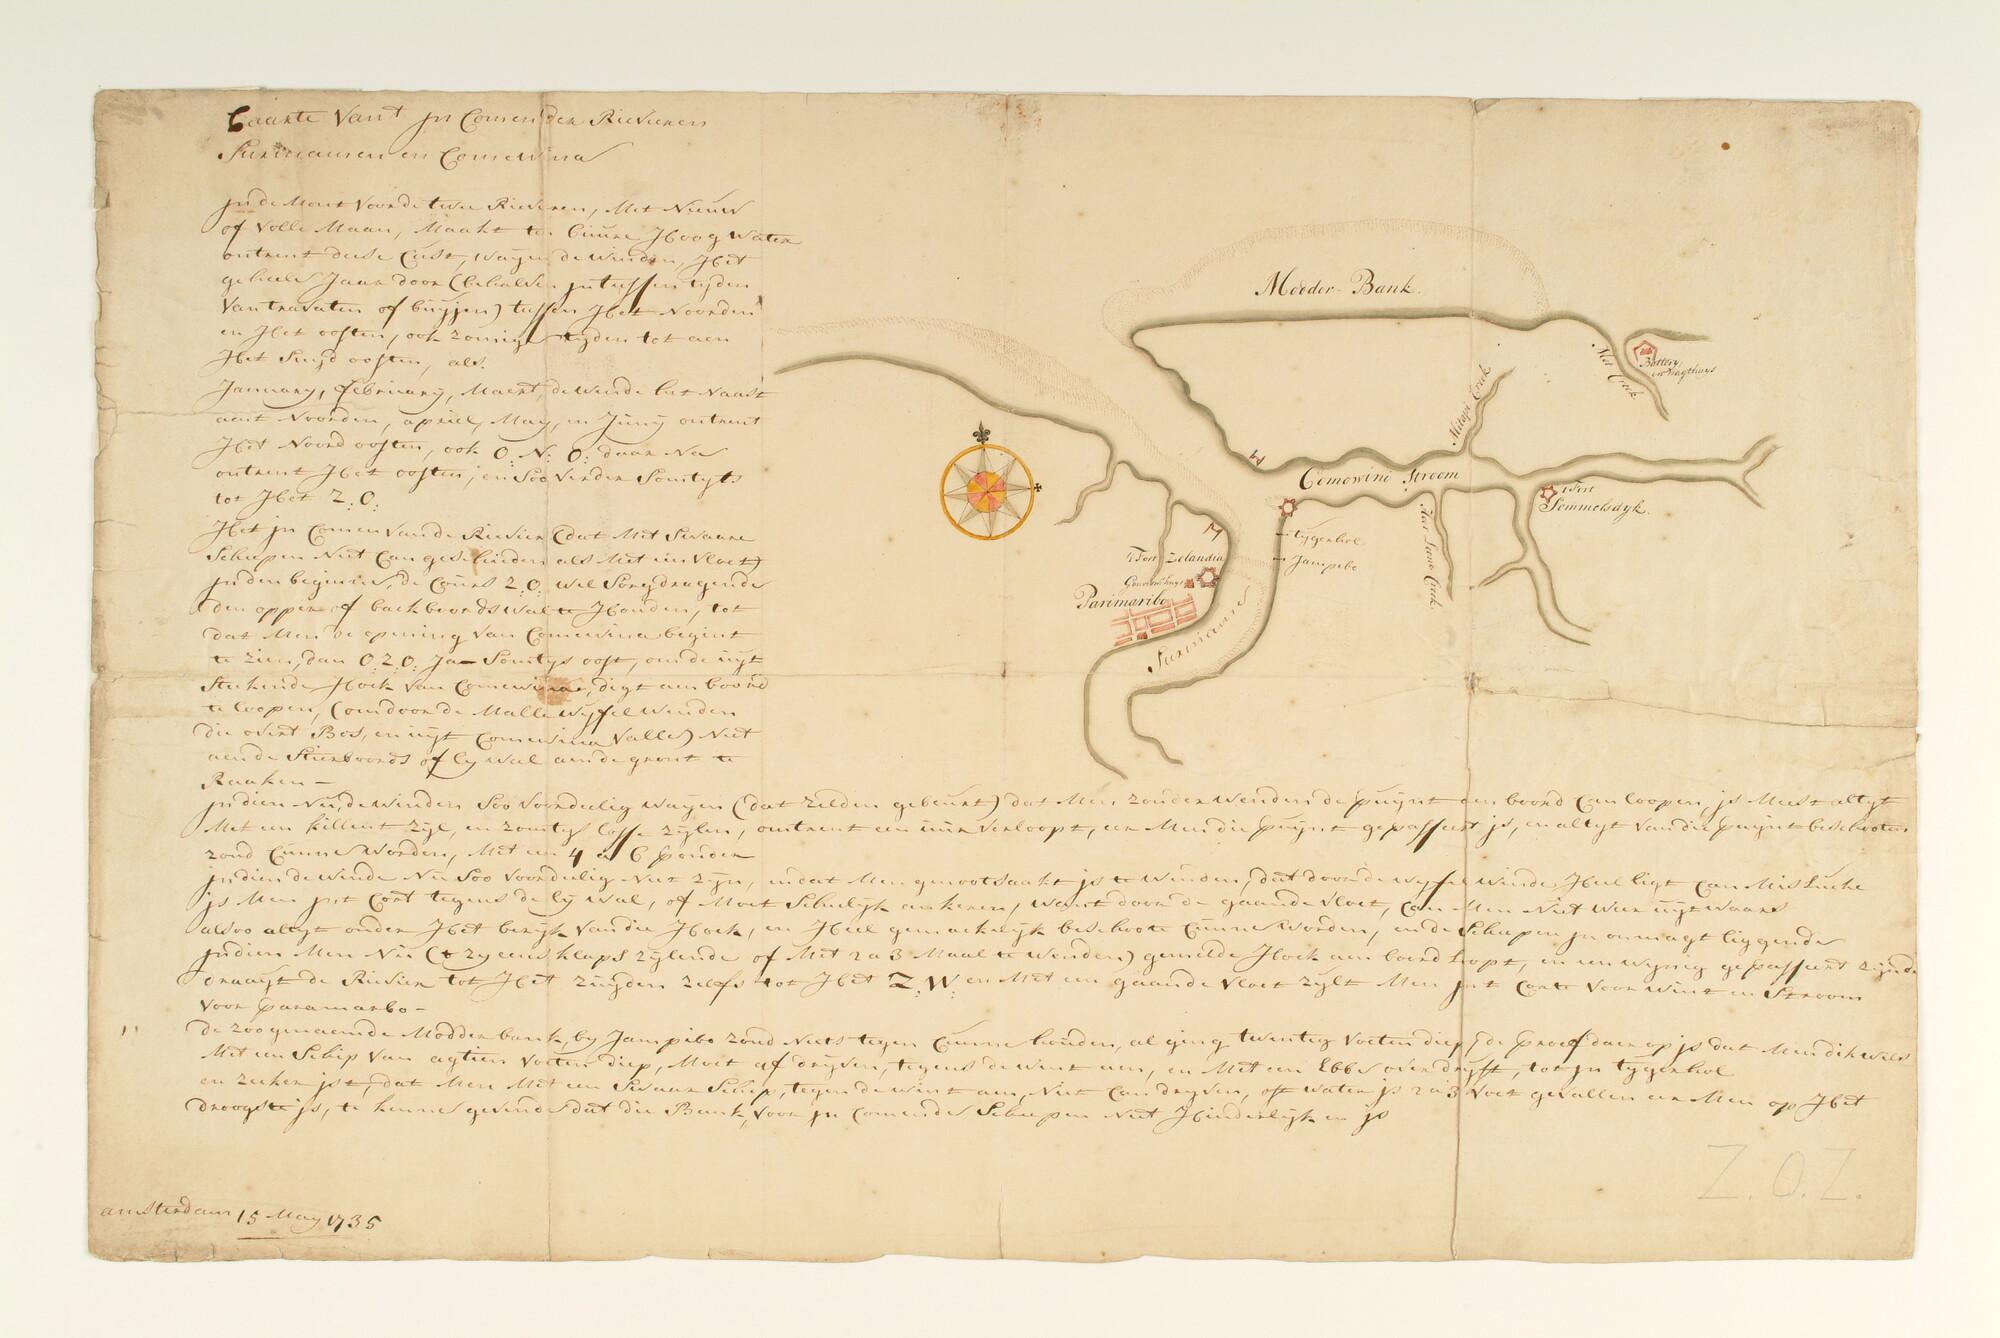 Caarte Vant jn Comen der Rievieren
Surinaamen en Comewina
jnde Mont voor de twee Rivieren, Met Nieuw
of Volle Maan, Maakt ten 6 uure Hoog Water
ontrent dese Cust, Wayen de Winden, Het
geheele Jaar door (behalven jn tussen tyden
Van travaten of buyjen) tussen Het Noorden
en Het oosten, ook zomige tyden tot aen
Het Suyd oosten, als.
January, february, Maert, de Winde het Naast
aent Noorden, april, May, en Juny ontrent
Het Noord oosten, ook O: N: O: daar Na
ontrent Het oosten, en Soo Verder Somtyts
tot Het Z: O:
Het jn Comen Van de Rievier (dat Met Swaare
Scheepen Niet Can geschieden als Met een Vloet)
jnden beginne, de Cours Z:O: wel Sorg dragende
den opper of backboords wal te Houden, tot
dat Men de opening Van Comewina begint
te zien, dan O:Z:O: Ja Somtys oost, om de uyt
Stekende Hoek Van Comewina, digt aen boord
te loopen, (om door de Malle Wyfel Winden
die overt Bos, en uyt Comewina Valle) Niet
aen de Stierboords of ly wal aen de gront te
Raaken —
jndien Nu, de Winden Soo Voordeelig Wayen (dat zelden gebeurt) dat Men zonder Wenden de puynt aen boord Can loopen, js Meest altyt
Met een killent zyl, en zomtys losse zylen, ontrent een uur verloopt, eer Men die puynt gepasseert js, en altyt van die puynt beschooten
zoud Cunne Worden, Met een 4 a 6 ponder
jndien de Winde Nu Soo Voordeelig Niet zyn, en dat Men genootsaakt js te Winden, dat door de Wyfel Winde Heel ligt Can Mislucke
js Men jnt Cort tegens de ly Wal, of Moet Schielyk ankeren, want door de gaande Vloet, Can Men Niet Weer uyt Waars
alsoo altyt onder Het beryk Van die Hoek, en Heel gemackelyk beschoote Cunne Worden, en de Scheepen jn onmagt liggende
jndien Men Nu (t zy eens klaps zylende of Met 2 a 3 Maal te Wenden) gemelde Hoek aen boord loopt, en een Wynig gepasseert zynde
draayt de Rievier tot Het zuyden zelfs tot Het Z:W: en Met een gaande Vloet zylt Men jnt Corte Voor Wint en Stroom
Voor Paramarbo —
de zoo genaemde Modder bank, by Jampibo zoud Niets tegen Cunne houden, al ging twenteg Voeten diep, de proef daer op js dat Men dikwels
Met een Schip Van agtien Voeten diep, Moet af dryven, tegens de Wint aen, en Met een Ebbe over dryft, tot jn tygerhol
en zeeker js t, dat Men Met een Swaar Schip, tegen de wint aen, Niet Can dryven, oft water js 2 a 3 Voet gevallen eer Men op Het
droogste js, te kennen gevende dat die Bank, Voor jn Comende Scheepen Niet Hinderlyk en js
amsterdam 15 May 1735
Modder-Bank.
Mot Creek
Battery
en wagthuys
Mitapi Creek
Comowini Stroom
't Fort
Sommelsdyk.
tygerhol
Jampibo
't Fort Zelandia
Gouverns huys
Parimaribo
Suriname
Z.O.Z.